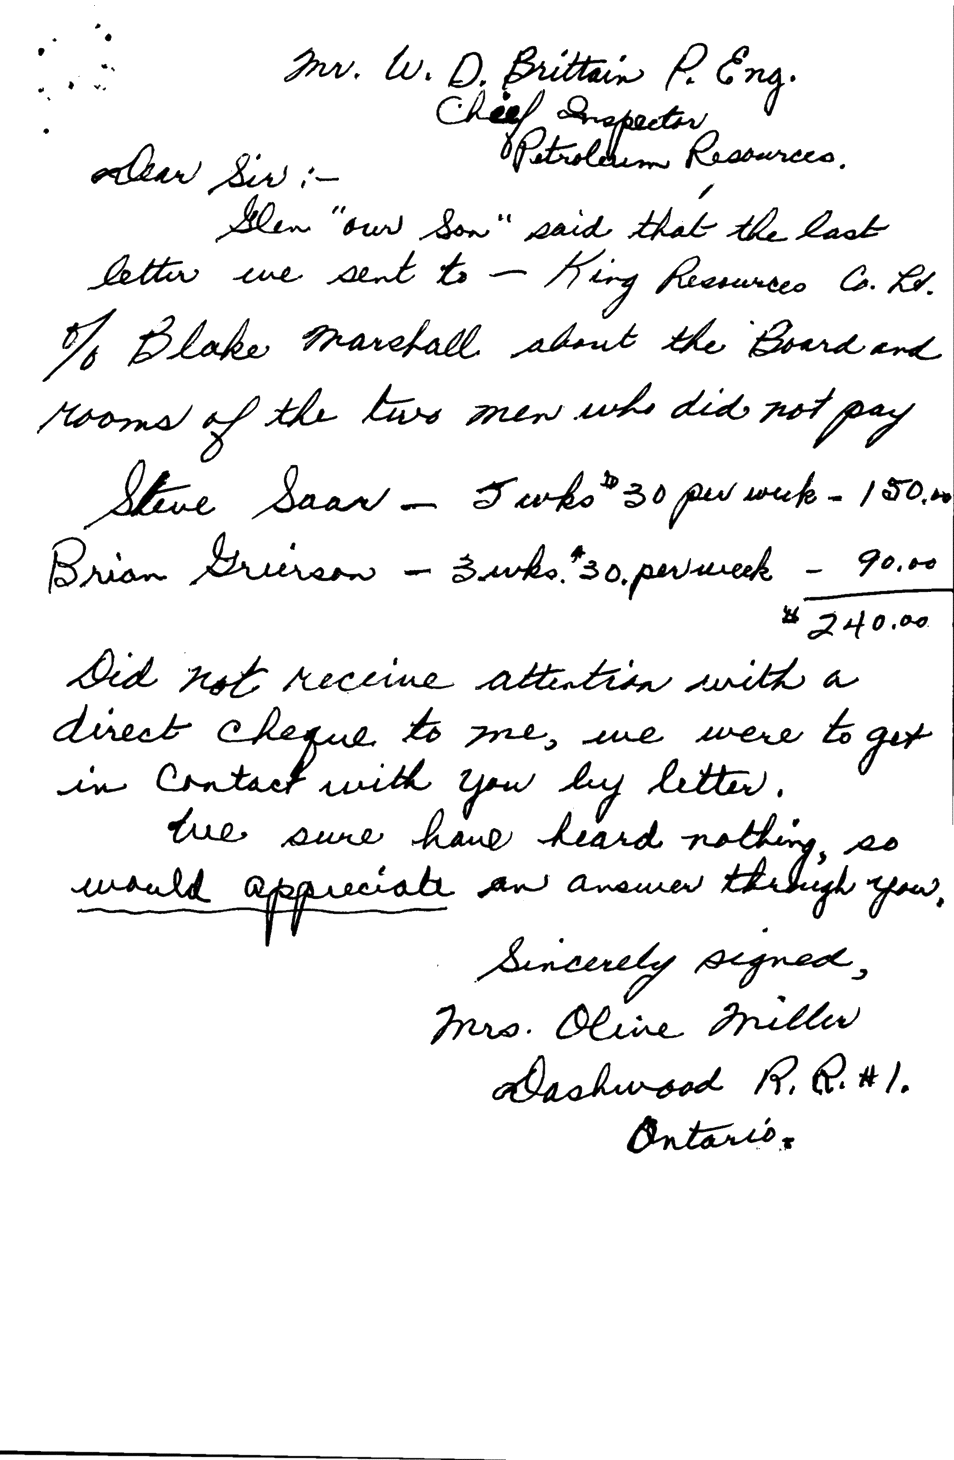 Mr. W. D. Brittain P. Eng.
Chief Inspector
Petroleum Resources.
Dear Sir :-
Glen "our Son" said that the last
letter we sent to - King Resources Co. Ld.
c/o Blake Marshall about the Board and
rooms of the two men who did not pay
Steve Saar - 5 wks $30 per week - 150.00
Brian Grierson - 3 wks. $30. per week - 90.00
$240.00
Did not receive attention with a
direct cheque to me, we were to get
in Contact with you by letter.
We sure have heard nothing, so
would appreciate an answer through you.
Sincerely signed,
Mrs. Olive Miller
Dashwood R. R. #1.
Ontario.